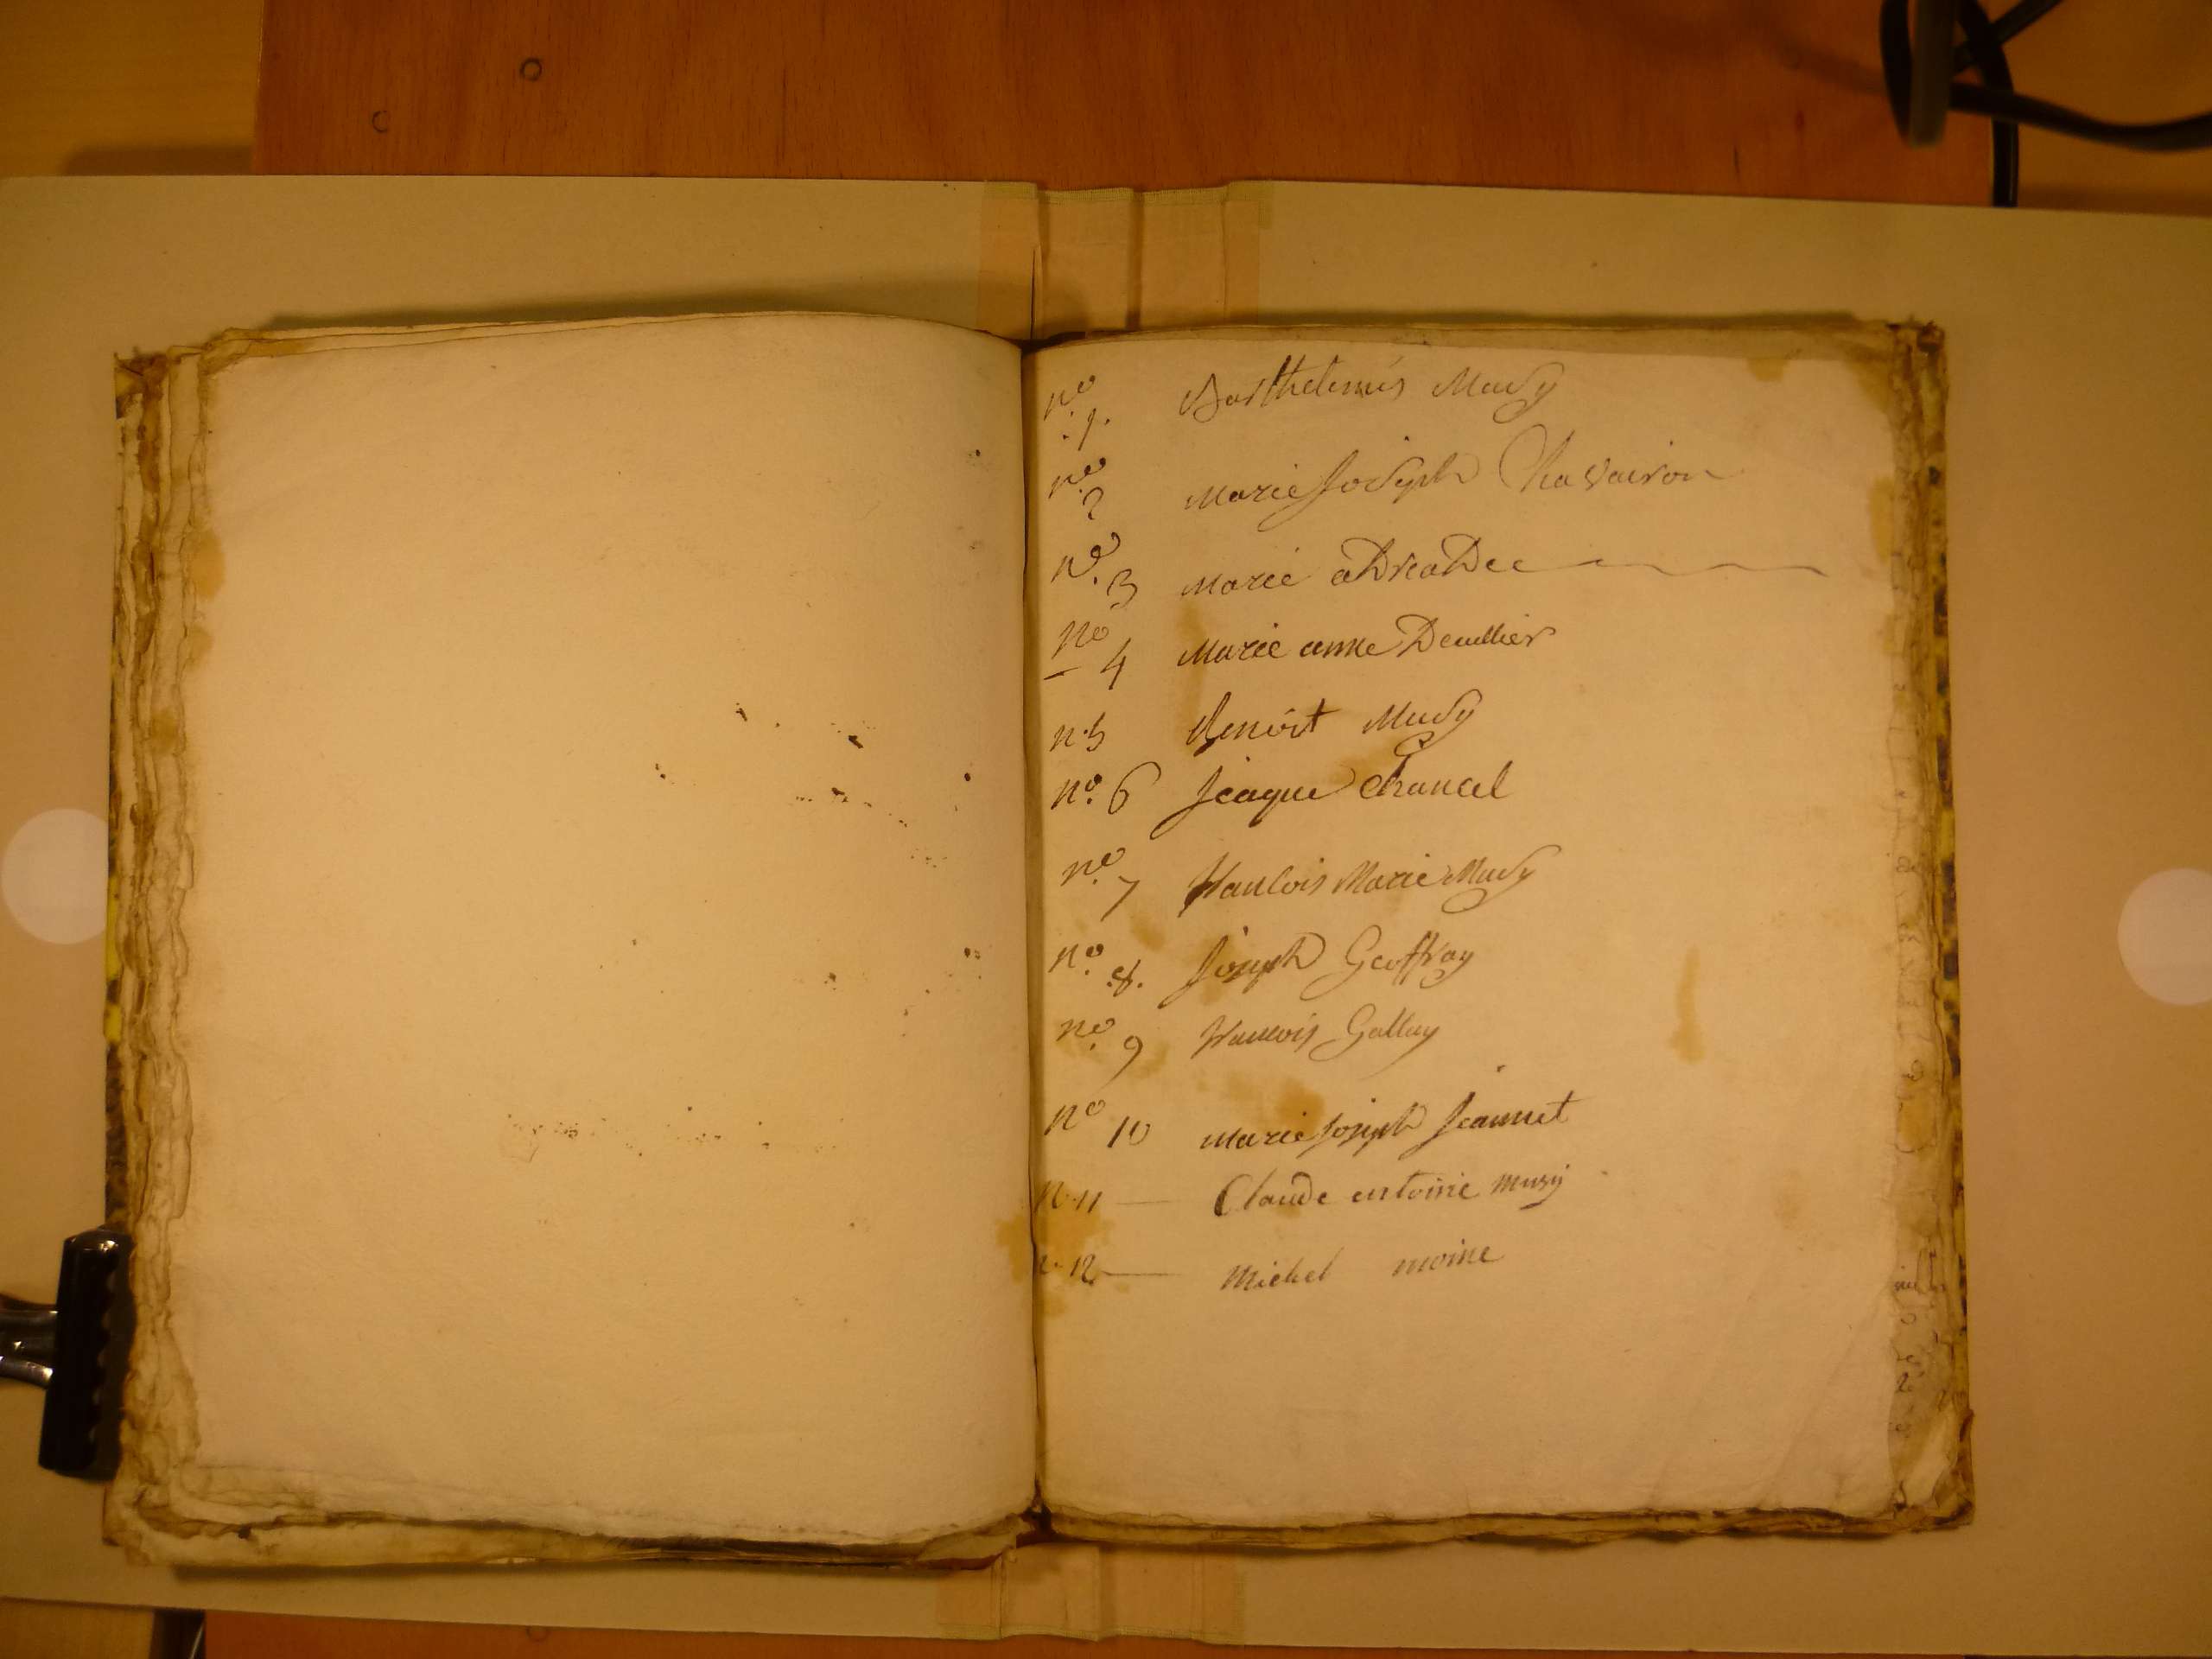 no. 1. Barthelemis Musy
no. 2 Marie Joseph Chavairon
no. 3 Marie adreadee
no 4 Marie anne Deuillier
n. 5 Benoit Musy
no. 6 Jcaque Chancel
no. 7 francois Marie Musy
no. 8. Joseph Geoffray
no. 9 francois Gallay
no 10 Marie Joseph Jeannet
n. 11 — Claude entoine musy
n. 12 — Michel moine